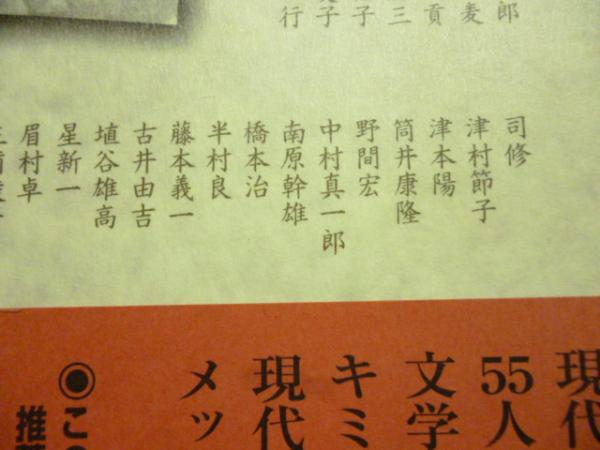 郎
麦
貢
三
子
子
行
司修
津村節子
津本陽
筒井康隆
野間宏
中村真一郎
南原幹雄
橋本治
半村良
藤本義一
古井由吉
埴谷雄高
星新一
眉村卓
現代
55人
文学
キミ
現代
メッ
◉こ
推